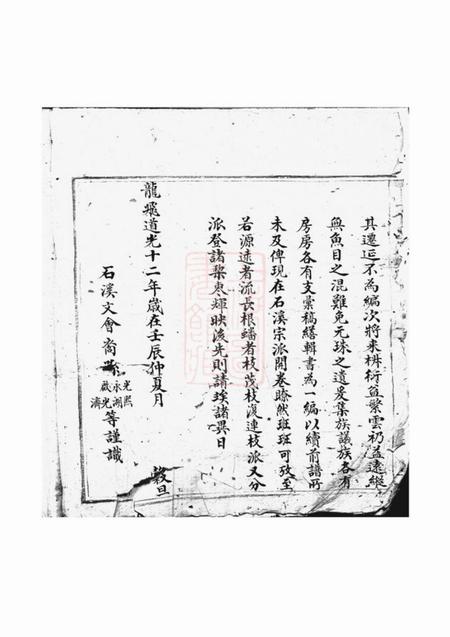 其遷延不為編次將來椒衍益繁雲礽益遠縱
無魚目之混難免元珠之遺爰集族議族各有
房房各有支彙稿繕輯書為一編以續前譜所
未及俾現在石溪宗派開卷瞭然班班可攷至
若源遠者流長根蟠者枝茂枝復連枝派又分
派登諸棃枣輝映後先則請竢諸異日
龍飛道光十二年歲在壬辰仲夏月
穀旦
石溪文會裔
光熙
永湖
啟光
濟
等謹識